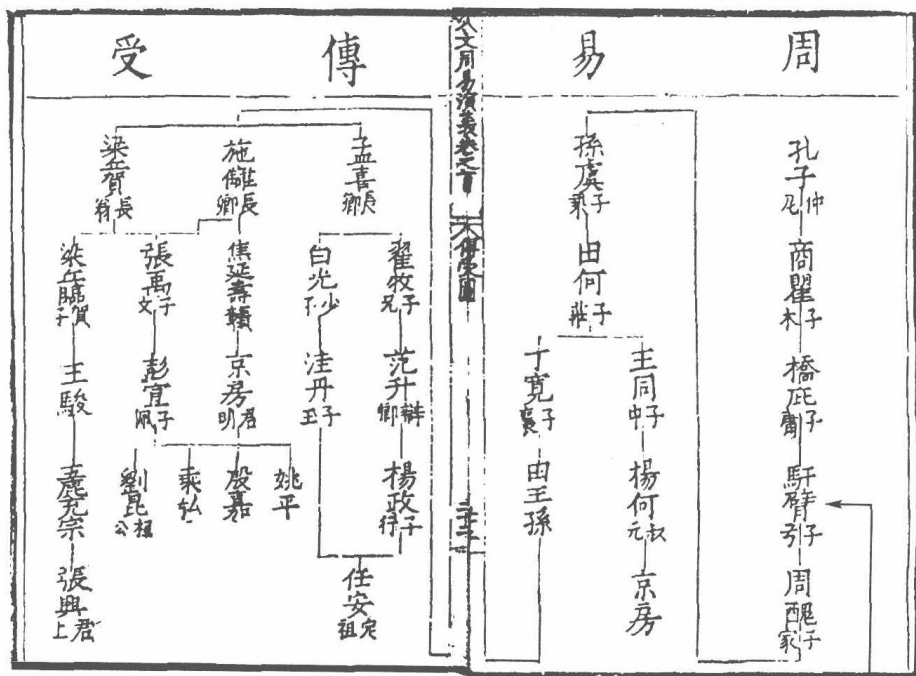 周易傳受
孔子仲尼
商瞿子木
橋庇子庸
馯臂子弓
周醜子家
孫虞子乘
田何子莊
王同子中
楊何叔元
京房
丁寬子襄
田王孫
孟喜長卿
施讎長卿
梁丘賀長翁
翟牧子兄
范升辯卿
楊政子行
白光少子
洼丹子玉
任安定祖
焦延壽贛
京房君明
姚平
殷嘉
乘弘
張禹子文
彭宣子佩
劉昆桓公
梁丘臨賀子
王駿
充宗
張興君上